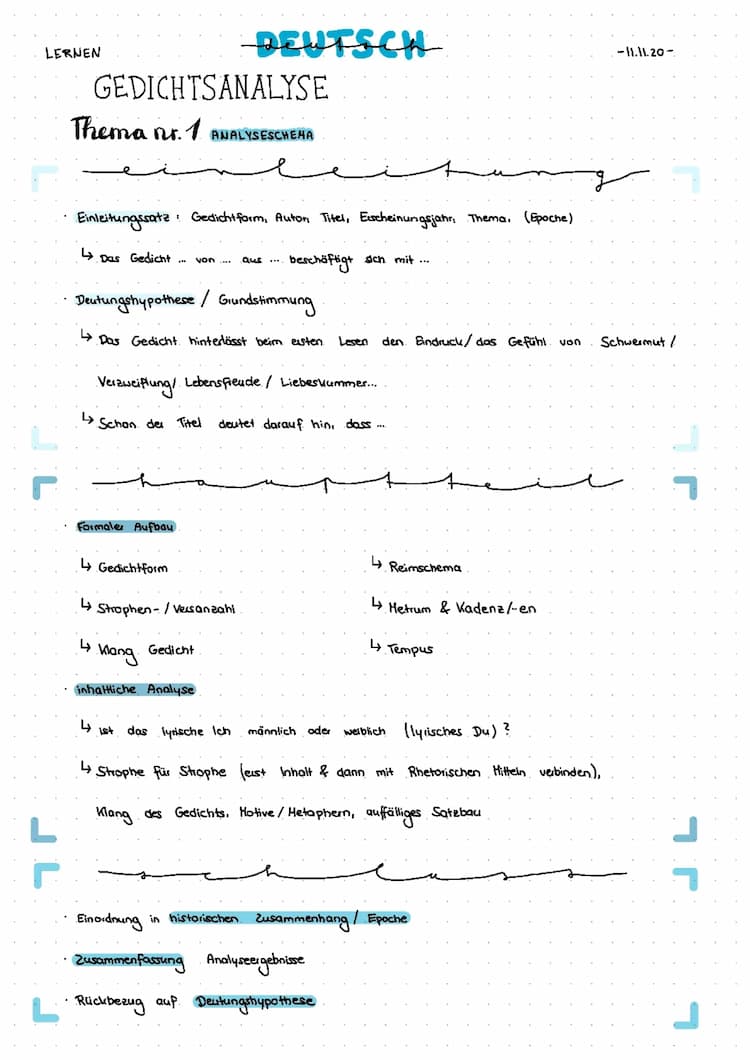 LERNEN
DEUTSCH
deutsch
-11.11.20-
GEDICHTSANALYSE
Thema nr. 1 ANALYSESCHEMA
einleitung
· Einleitungssatz: Gedichtform, Autor, Titel, Erscheinungsjahr, Thema, (Epoche)
↳ Das Gedicht ... von ... aus ... beschäftigt sich mit ...
· Deutungshypothese / Grundstimmung
↳ Das Gedicht hinterlässt beim ersten Lesen den Eindruck/das Gefühl von Schwermut/
Verzweiflung/ Lebensfreude / Liebeskummer...
↳ Schon der Titel deutet darauf hin, dass ...
hauptteil
· Formaler Aufbau
↳ Gedichtform
↳ Reimschema
↳ Strophen- / Versanzahl
↳ Metrum & Kadenz/-en
↳ Klang Gedicht
↳ Tempus
· inhaltliche Analyse
↳ ist das lyrische Ich männlich oder weiblich (lyrisches Du)?
↳ Strophe für Strophe (erst Inhalt & dann mit Rhetorischen Mitteln verbinden),
Klang des Gedichts, Motive/Metaphern, auffälliges Satzbau
schluss
· Einordnung in historischen Zusammenhang/ Epoche
· Zusammenfassung Analyseergebnisse
· Rückbezug auf Deutungshypothese